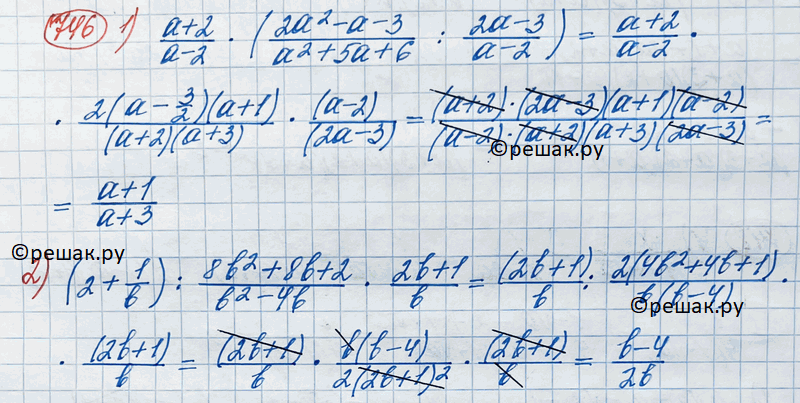 746 1) (a+2)/(a-2) · ((2a²-a-3)/(a²+5a+6) : (2a-3)/(a-2)) = (a+2)/(a-2) ·
· (2(a-3/2)(a+1))/((a+2)(a+3)) · (a-2)/(2a-3) = ((a+2)·(2a-3)(a+1)(a-2))/((a-2)·(a+2)(a+3)(2a-3)) =
©решак.ру
= (a+1)/(a+3)
©решак.ру
2) (2+1/b) : (8b²+8b+2)/(b²-4b) · (2b+1)/b = (2b+1)/b : (2(4b²+4b+1))/(b(b-4)) ·
©решак.ру
· (2b+1)/b = (2b+1)/b · (b(b-4))/(2(2b+1)²) · (2b+1)/b = (b-4)/(2b)